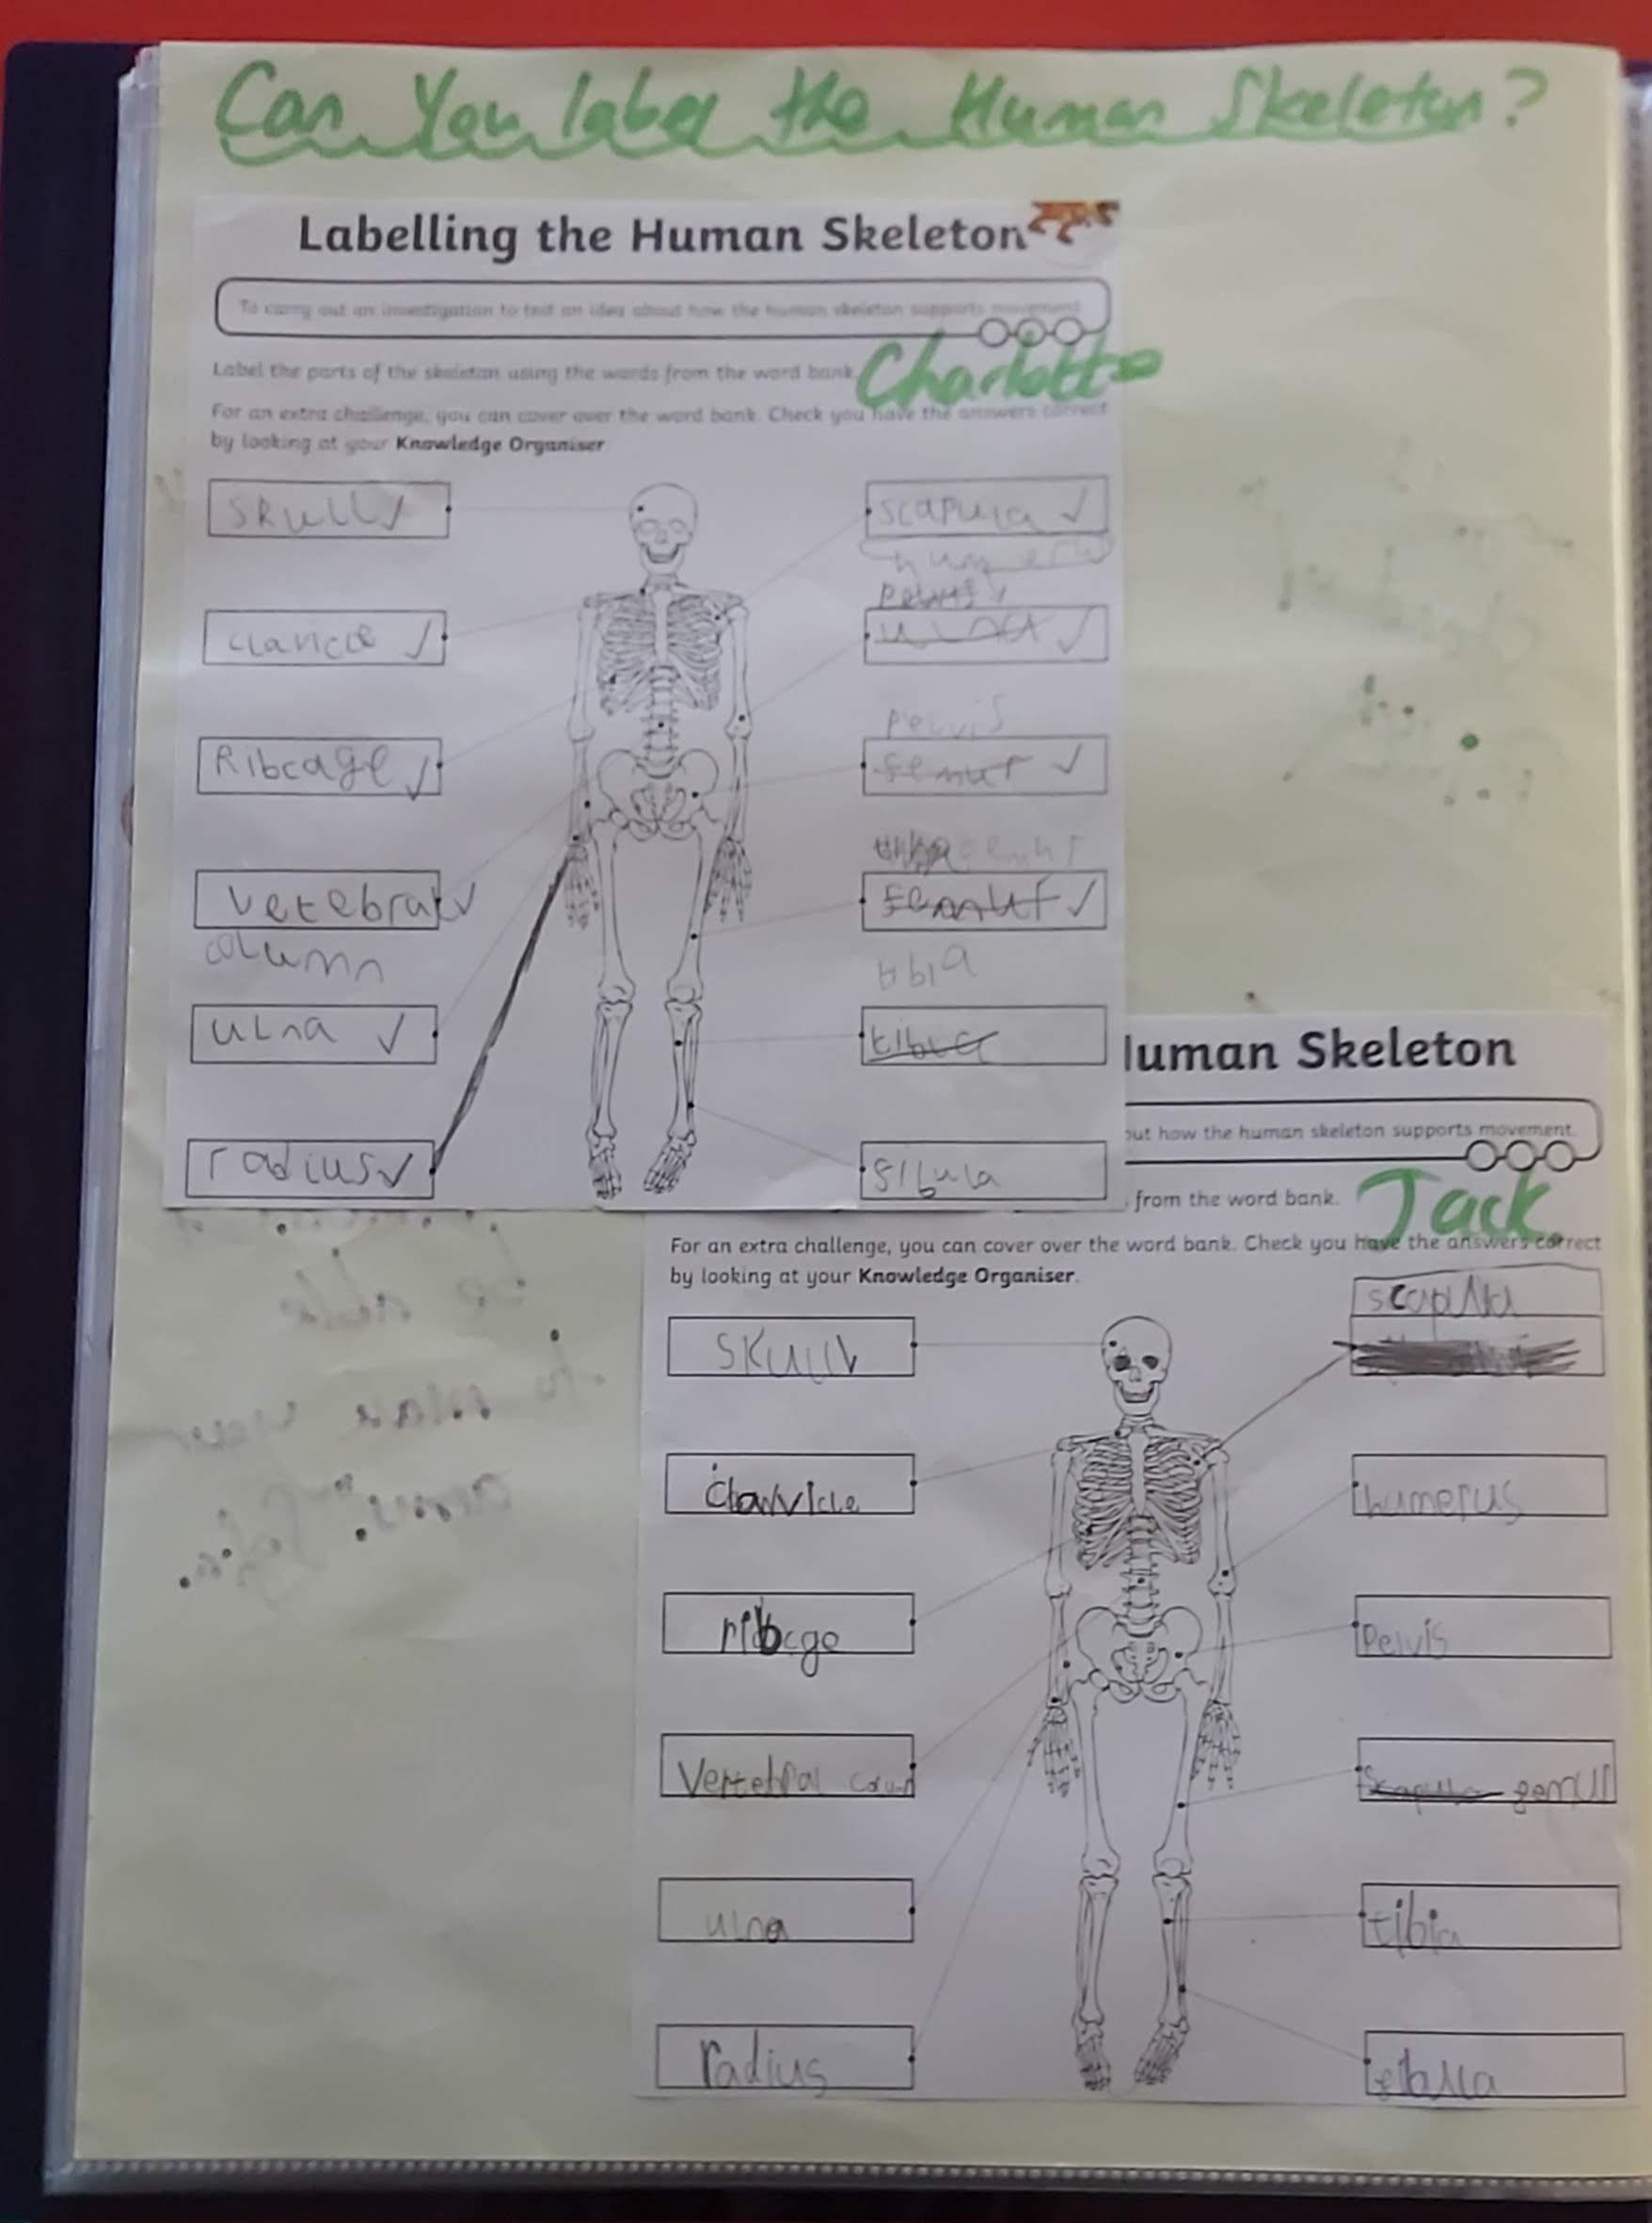 Can You label the Human Skeleton?
Labelling the Human Skeleton
To carry out an investigation to test an idea about how the human skeleton supports movement
Label the parts of the skeleton using the words from the word bank
Charlotte
For an extra challenge, you can cover over the word bank. Check you have the answers correct
by looking at your Knowledge Organiser
skull ✓
scapula ✓
pelvis
clavicle ✓
ulna ✓
pelvis
Ribcage ✓
femur ✓
femur
vetebral ✓
femur ✓
column
tibia
ulna ✓
tibia
radius ✓
fibula
Human Skeleton
out how the human skeleton supports movement.
from the word bank.
Jack
For an extra challenge, you can cover over the word bank. Check you have the answers correct
by looking at your Knowledge Organiser.
scapula
skull
clavicle
humerus
ribcge
Pelvis
Vertebral
scapula femur
ulna
tibia
radius
fibula